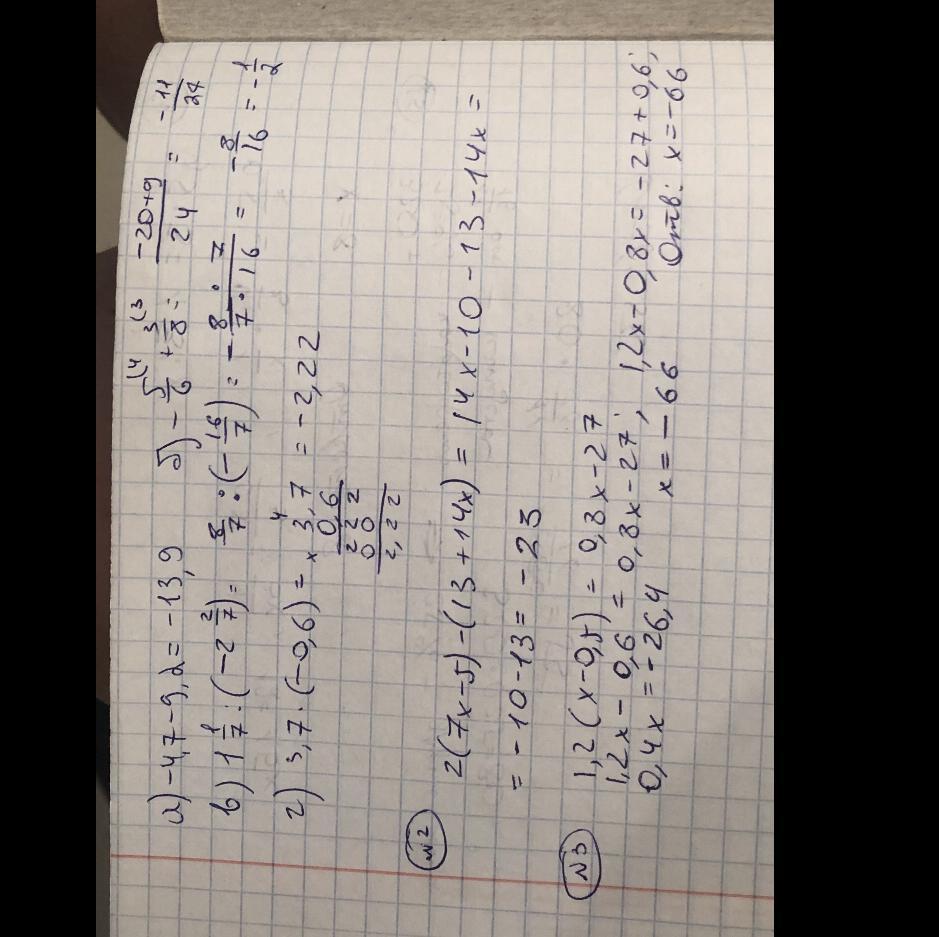 а) -4,7-9,2=-13,9   б) -5/6(4 + 3/8(3 = (-20+9)/24 = -11/24
в) 1 1/7 : (-2 2/7) = 8/7 : (-16/7) = -(8·7)/(7·16) = -8/16 = -1/2
г) 3,7·(-0,6) = -2,22
4
× 3,7
0,6
2 2 2
0 0
2,2 2
№2
2(7x-5)-(13+14x) = 14x-10-13-14x =
= -10-13 = -23
№3
1,2(x-0,5) = 0,8x-27
1,2x-0,6 = 0,8x-27; 1,2x-0,8x=-27+0,6;
0,4x = -26,4   x = -66   Отв: x=-66